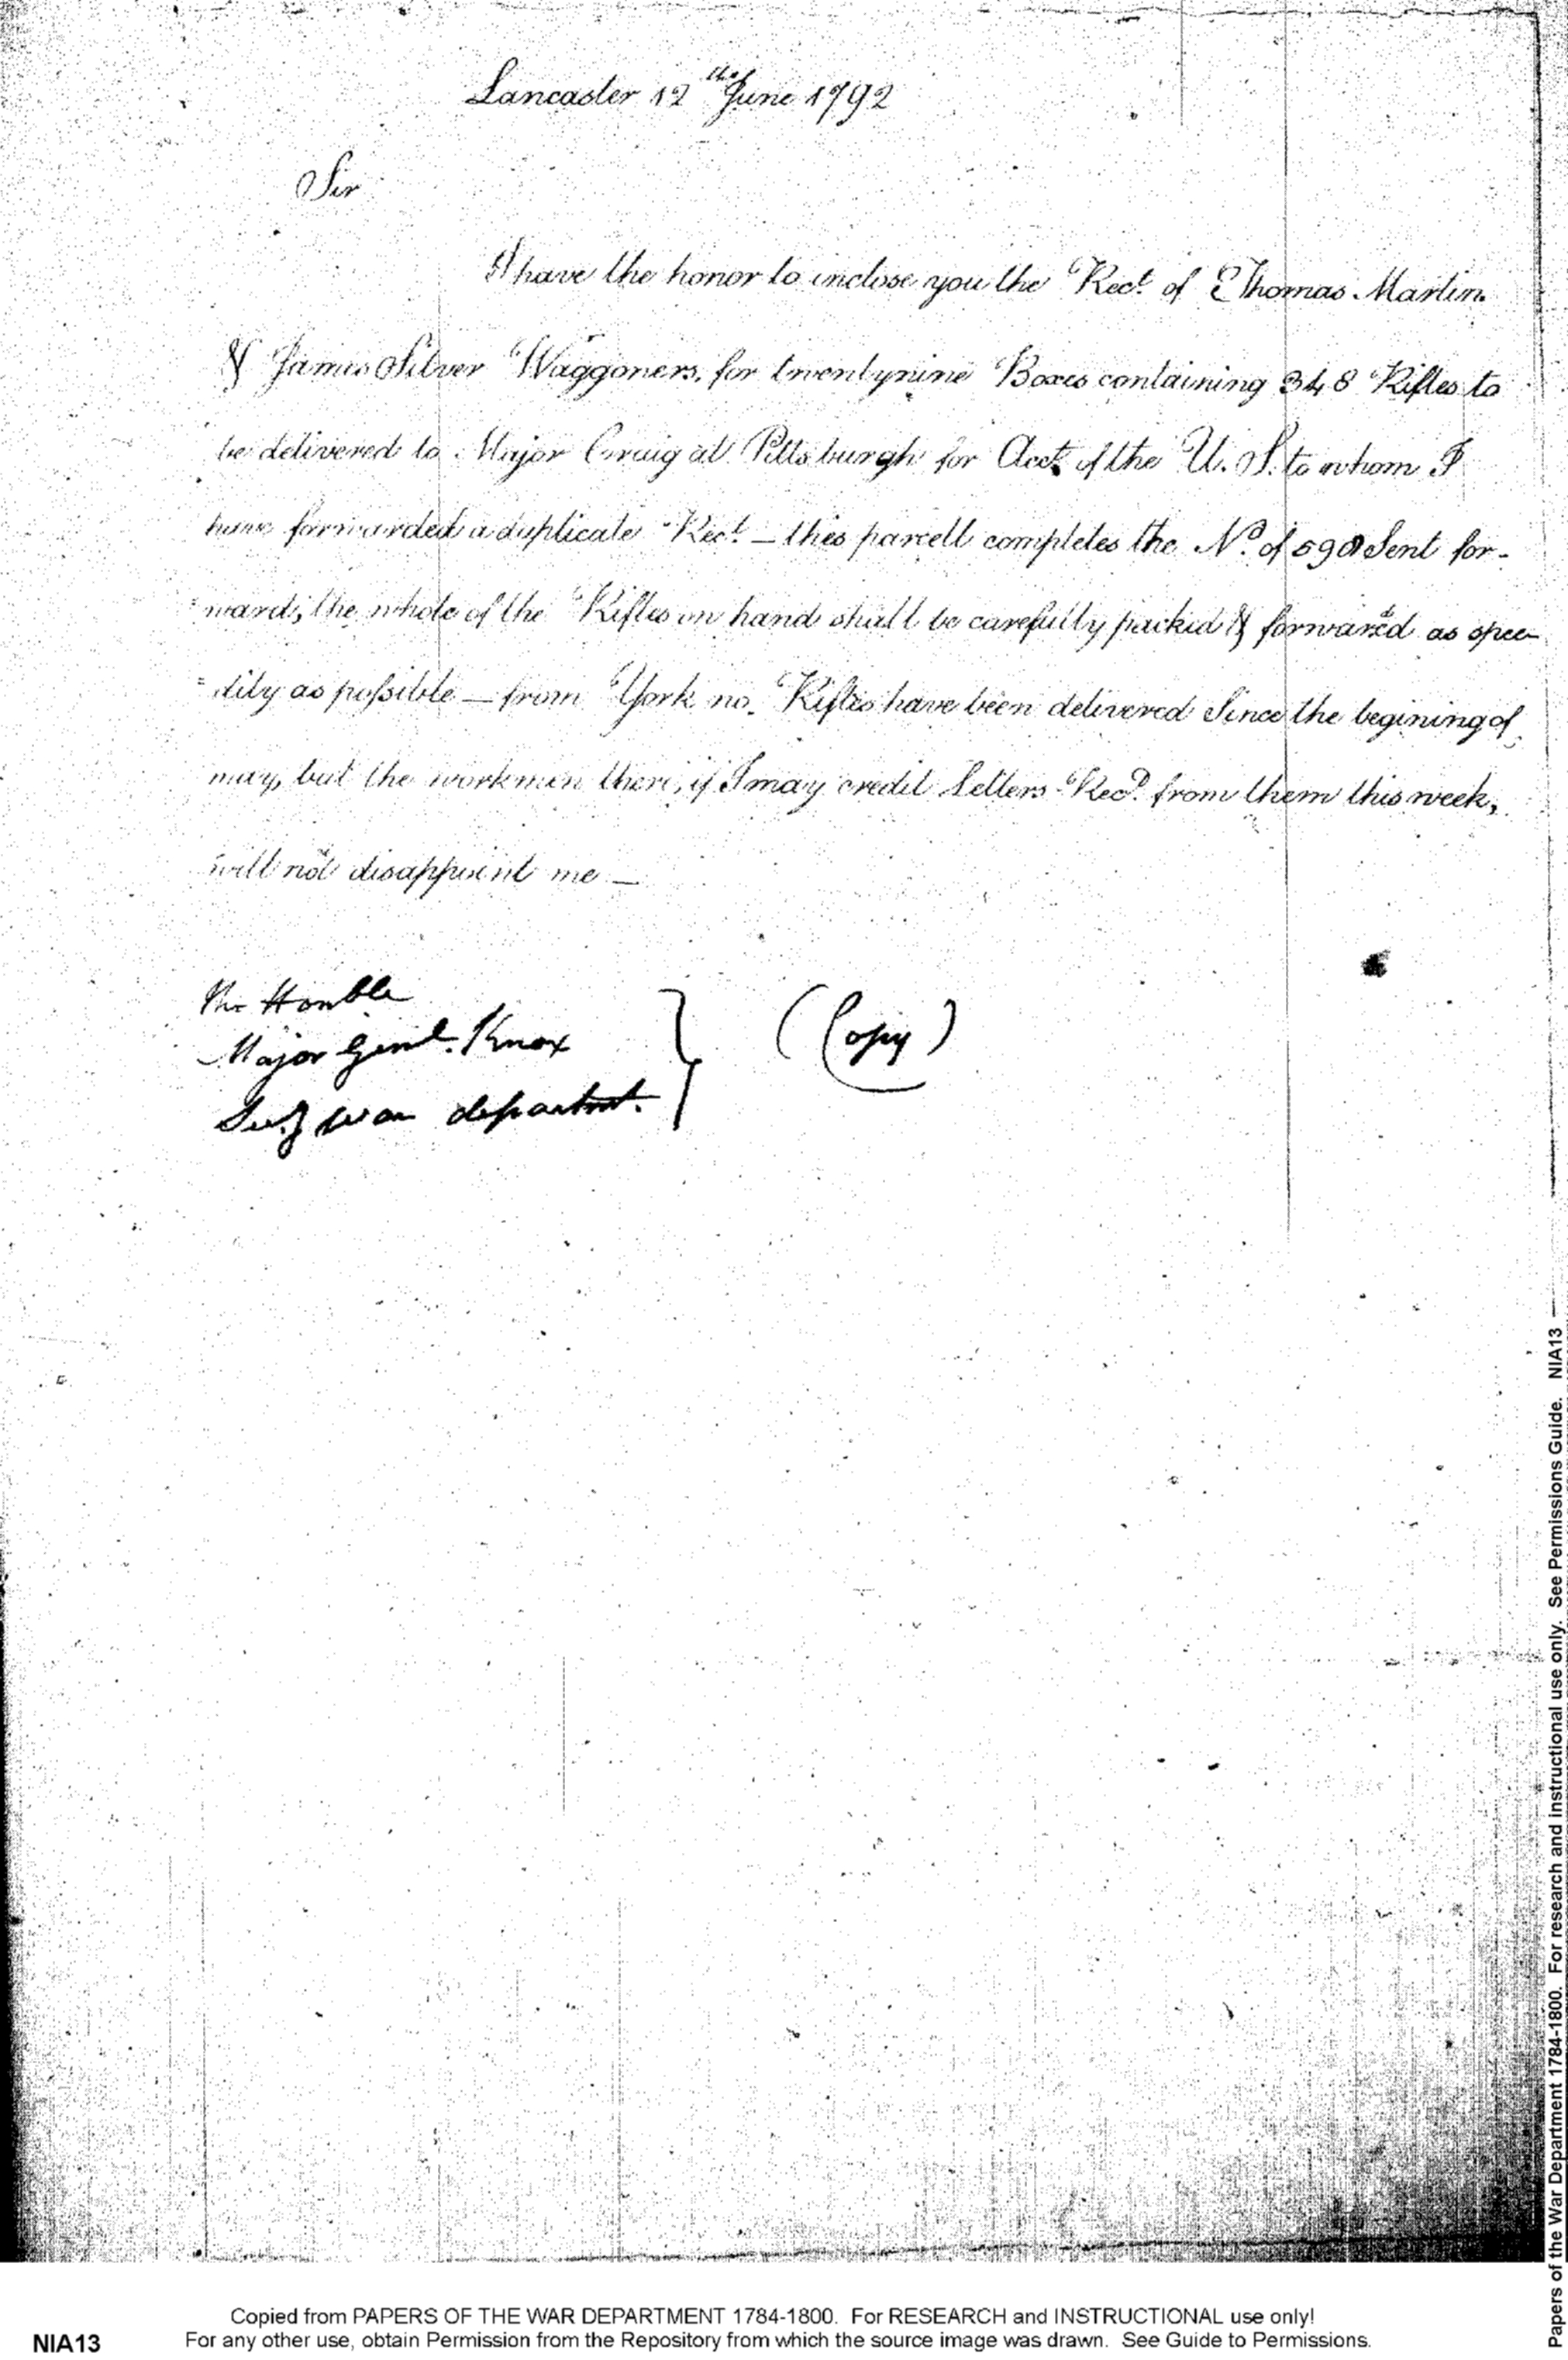 Lancaster 12th June 1792
Sir
I have the honor to inclose you the Rect. of Thomas Martin
& James Silver Waggoners, for twentynine Boxes containing 348 Rifles to
be delivered to Major Craig at Pittsburgh for Acct. of the U. S. to whom I
have forwarded a duplicate Rect. — this parcell completes the No. of Sent for-
ward; the whole of the Rifles on hand shall be carefully packed & forwared as spee
=dily as possible — from York no Rifles have been delivered Since the begining of
may, but the workmen there, if I may credit Letters Recd. from them this week,
will not disappoint me —
The Honble
Major Genl. Knox
Secy war departmt.
(Copy)
Copied from PAPERS OF THE WAR DEPARTMENT 1784-1800. For RESEARCH and INSTRUCTIONAL use only!
NIA13 For any other use, obtain Permission from the Repository from which the source image was drawn. See Guide to Permissions.
Papers of the War Department 1784-1800. For research and instructional use only. See Permissions Guide. NIA13